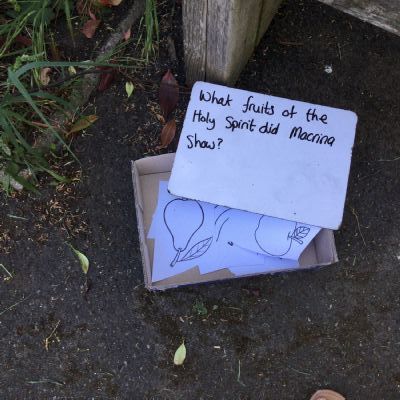 What fruits of the
Holy Spirit did Macrina
Show?